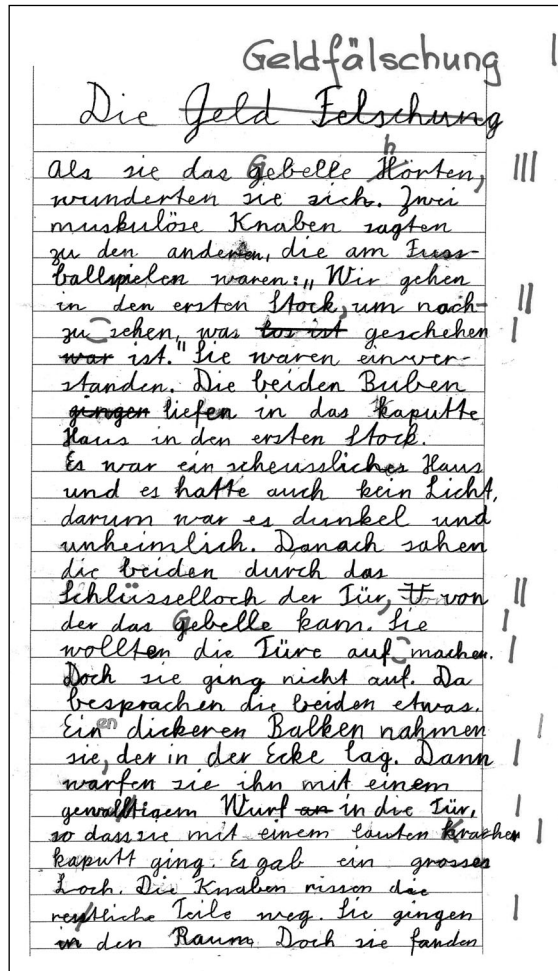 Geldfälschung
Die Geld Felschung
Als sie das Gebelle hörten,
wunderten sie sich. Zwei
muskulöse Knaben sagten
zu den anderen, die am Fuss-
ballspielen waren: „Wir gehen
in den ersten Stock, um nach-
zu sehen, was los ist geschehen
war ist." Sie waren einver-
standen. Die beiden Buben
gingen liefen in das kaputte
Haus in den ersten Stock.
Es war ein scheussliches Haus
und es hatte auch kein Licht,
darum war es dunkel und
unheimlich. Danach sahen
die beiden durch das
Schlüsselloch der Tür, von
der das Gebelle kam. Sie
wollten die Türe auf machen.
Doch sie ging nicht auf. Da
besprachen die beiden etwas.
Einen dickeren Balken nahmen
sie, der in der Ecke lag. Dann
warfen sie ihn mit einem
gewaltigem Wurf an in die Tür,
so dass sie mit einem lauten Krachen
kaputt ging. Es gab ein grosses
Loch. Die Knaben rissen die
restliche Teile weg. Sie gingen
in den Raum. Doch sie fanden